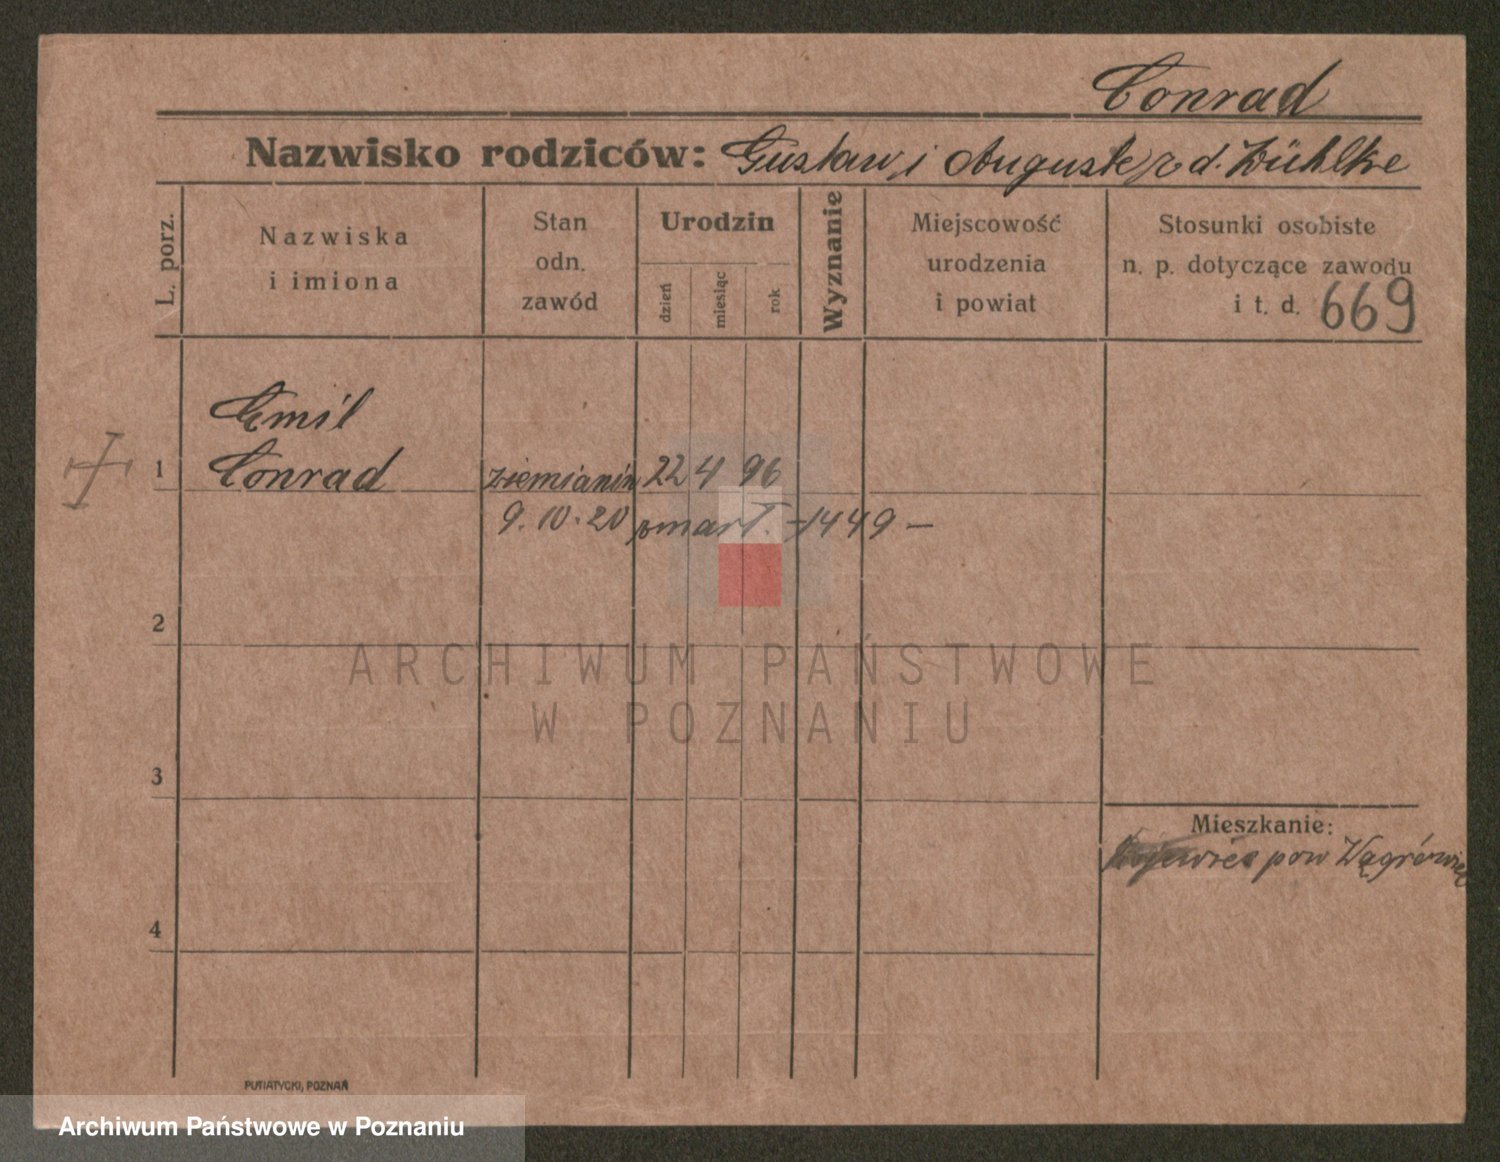 Conrad
Nazwisko rodziców: Gustaw i Auguste z d. Zühlke
L. porz.
Nazwiska
i imiona
Stan
odn.
zawód
Urodzin
dzień
miesiąc
rok
Wyznanie
Miejscowość
urodzenia
i powiat
Stosunki osobiste
n. p. dotyczące zawodu
i t. d. 669
Emil
1 Conrad ziemianin 22 4 96
9. 10. 20 zmarł.
2
ARCHIWUM PAŃSTWOWE
W POZNANIU
3
Mieszkanie:
pow Wągrówiec
4
PUTIATYCKI, POZNAŃ
Archiwum Państwowe w Poznaniu